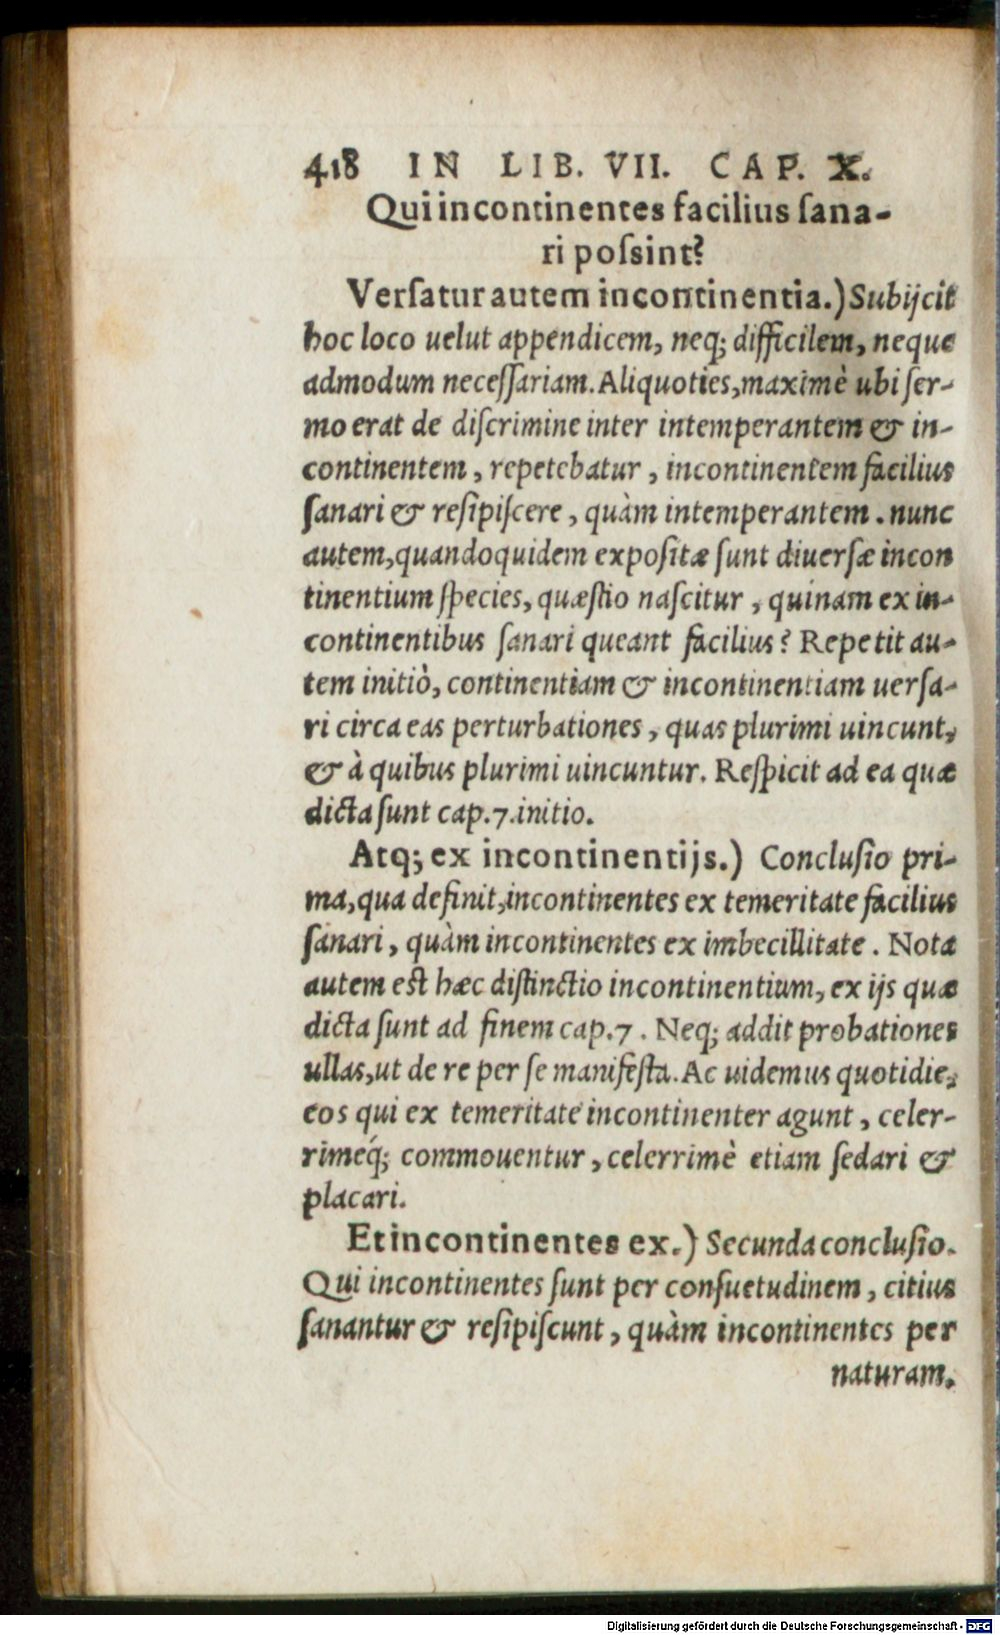 418 IN LIB. VII. CAP. X.
Qui incontinentes facilius ſana-
ri poſsint?
Verſatur autem incontinentia.) Subijcit
hoc loco uelut appendicem, neq; difficilem, neque
admodum neceſſariam. Aliquoties, maximè ubi ſer-
mo erat de diſcrimine inter intemperantem & in-
continentem, repetebatur, incontinentem facilius
ſanari & reſipiſcere, quàm intemperantem. nunc
autem, quandoquidem expoſitæ ſunt diuerſæ incon
tinentium ſpecies, quæſtio naſcitur, quinam ex in-
continentibus ſanari queant facilius? Repetit au-
tem initiò, continentiam & incontinentiam uerſa-
ri circa eas perturbationes, quas plurimi uincunt,
& à quibus plurimi uincuntur. Reſpicit ad ea quæ
dicta ſunt cap. 7. initio.
Atq; ex incontinentijs.) Concluſio pri-
ma, qua definit, incontinentes ex temeritate facilius
ſanari, quàm incontinentes ex imbecillitate. Nota
autem eſt hæc diſtinctio incontinentium, ex ijs quæ
dicta ſunt ad finem cap. 7. Neq; addit probationes
ullas, ut de re per ſe manifeſta. Ac uidemus quotidie,
eos qui ex temeritate incontinenter agunt, celer-
rimeq́; commouentur, celerrimè etiam ſedari &
placari.
Et incontinentes ex.) Secunda concluſio.
Qui incontinentes ſunt per conſuetudinem, citius
ſanantur & reſipiſcunt, quàm incontinentes per
naturam.
Digitalisierung gefördert durch die Deutsche Forschungsgemeinschaft - DFG